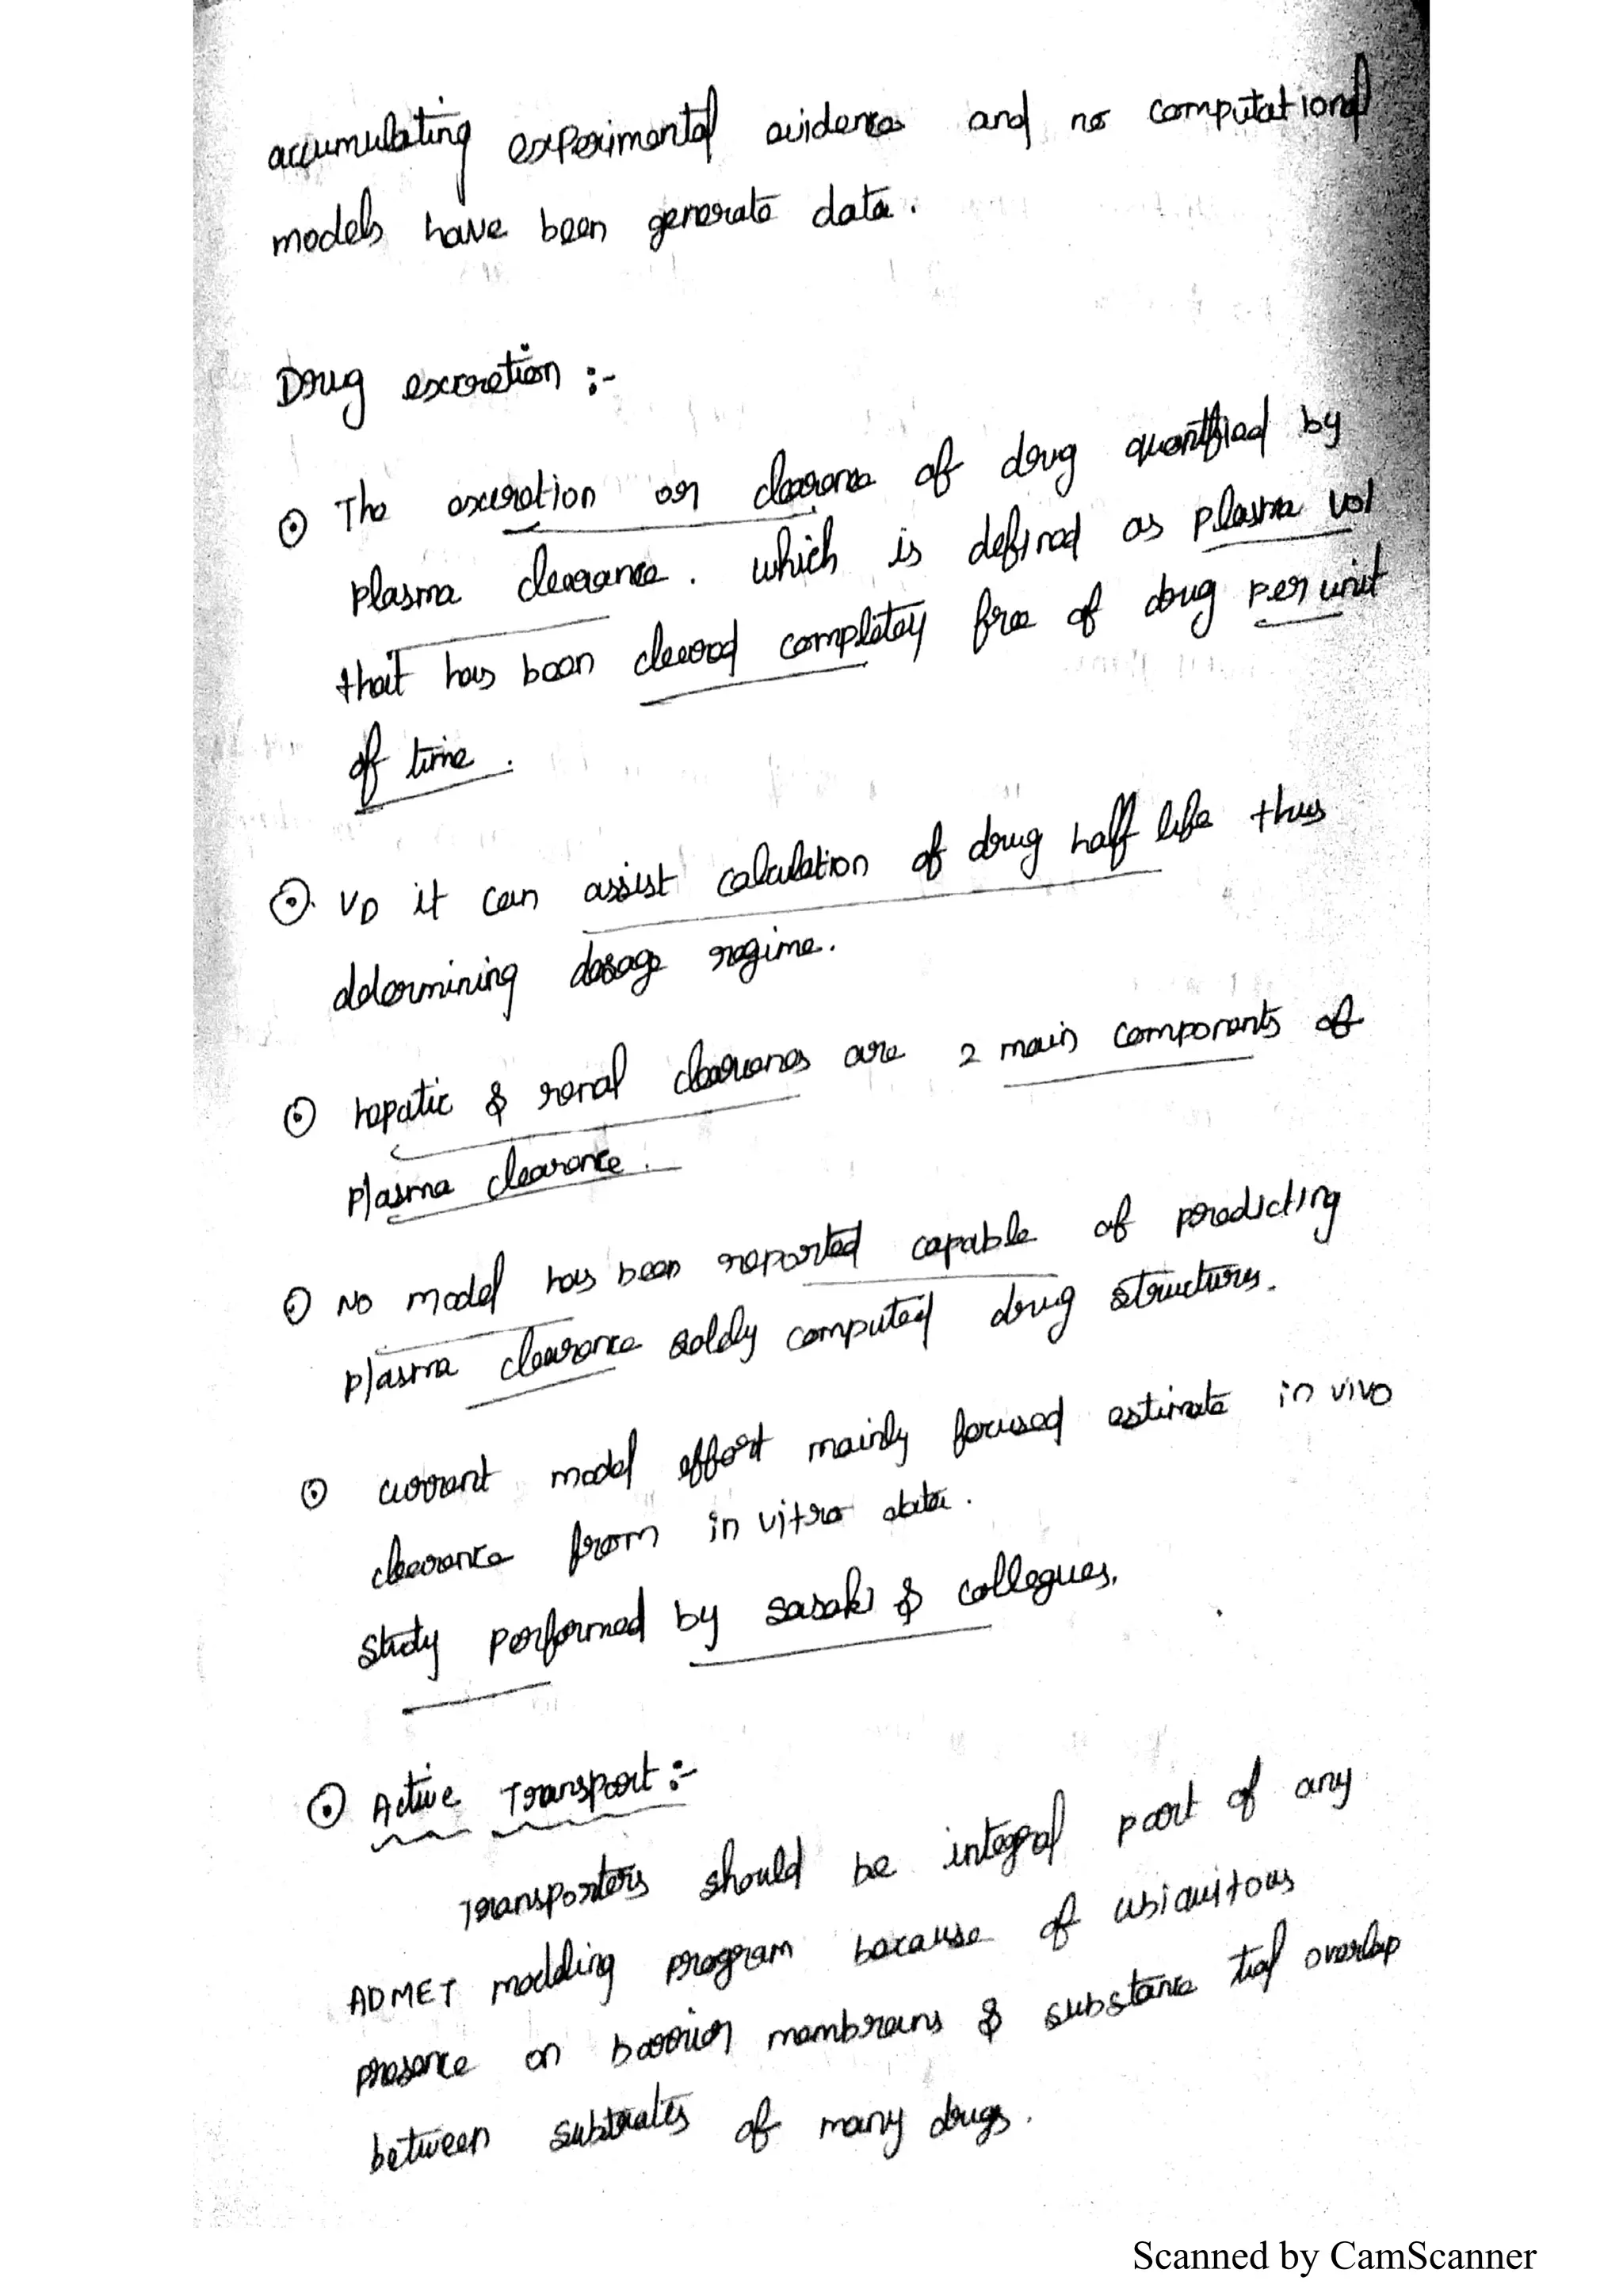 accumulating experimental evidence and no computational
models have been generate data.
Drug excretion :-
The excretion or clearance of drug quantified by
plasma clearance. which is defined as plasma vol
that has been cleared completely free of drug per unit
of time.
VD it can assist calculation of drug half life thus
determining dosage regime.
hepatic & renal clearances are 2 main components of
plasma clearance.
No model has been reported capable of predicting
plasma clearance solely computed drug structures.
current model effort mainly focused estimate in vivo
clearance from in vitro data.
study performed by sasaki & collegues.
Active Transport :-
Transporters should be integral part of any
ADMET modeling program because of ubiquitous
presence on barrier membrans & substance tial overlap
between substrates of many drugs.
Scanned by CamScanner